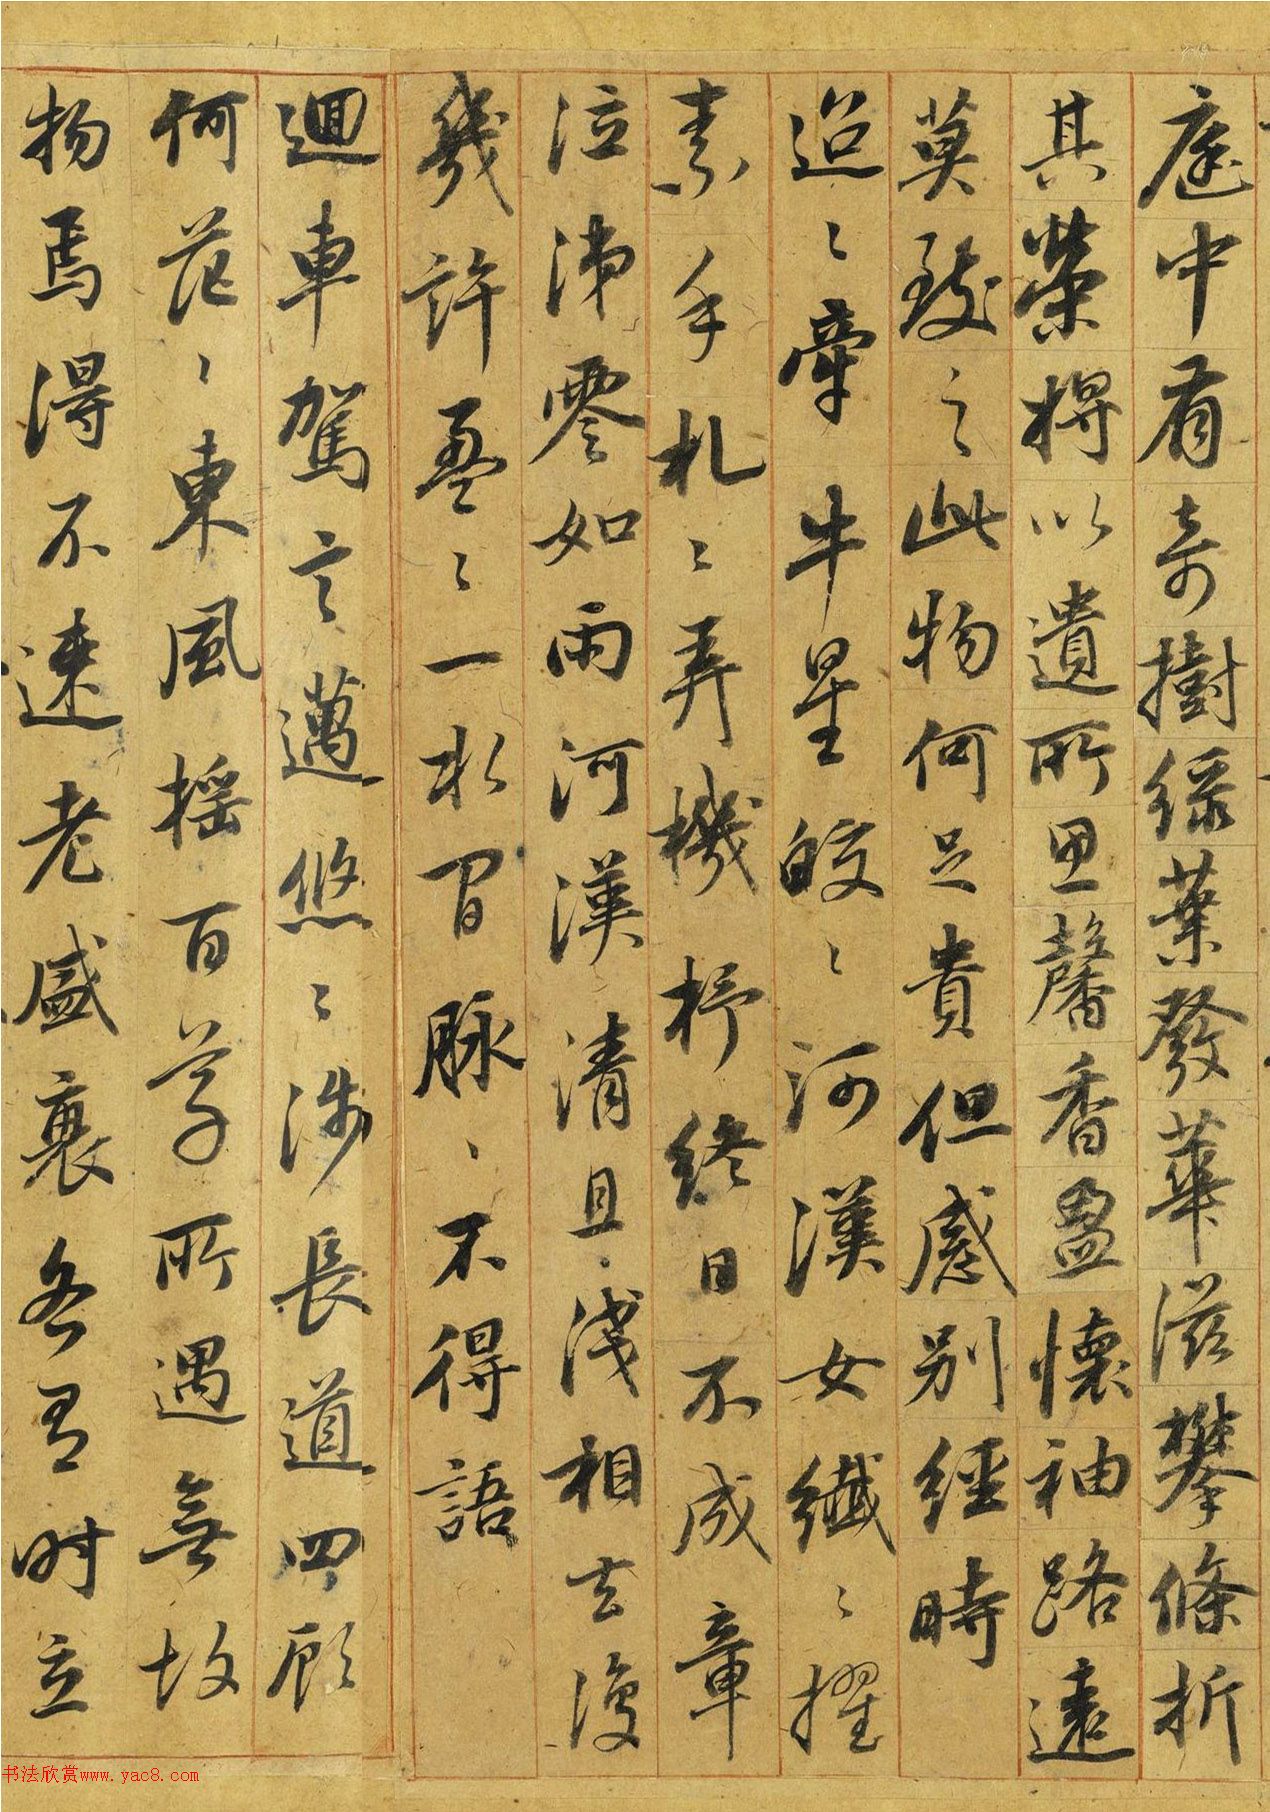 庭中有奇樹綠葉發華滋攀條折
其榮將以遺所思馨香盈懷袖路遠
莫致之此物何足貴但感別經時
迢〻牽牛星皎〻河漢女纖〻擢
素手札〻弄機杼終日不成章
泣涕零如雨河漢清且淺相去復
幾許盈〻一水間脉〻不得語
迴車駕言邁悠〻涉長道四顧
何茫〻東風摇百草所遇無故
物焉得不速老盛衰各有時立
书法欣赏www.yac8.com